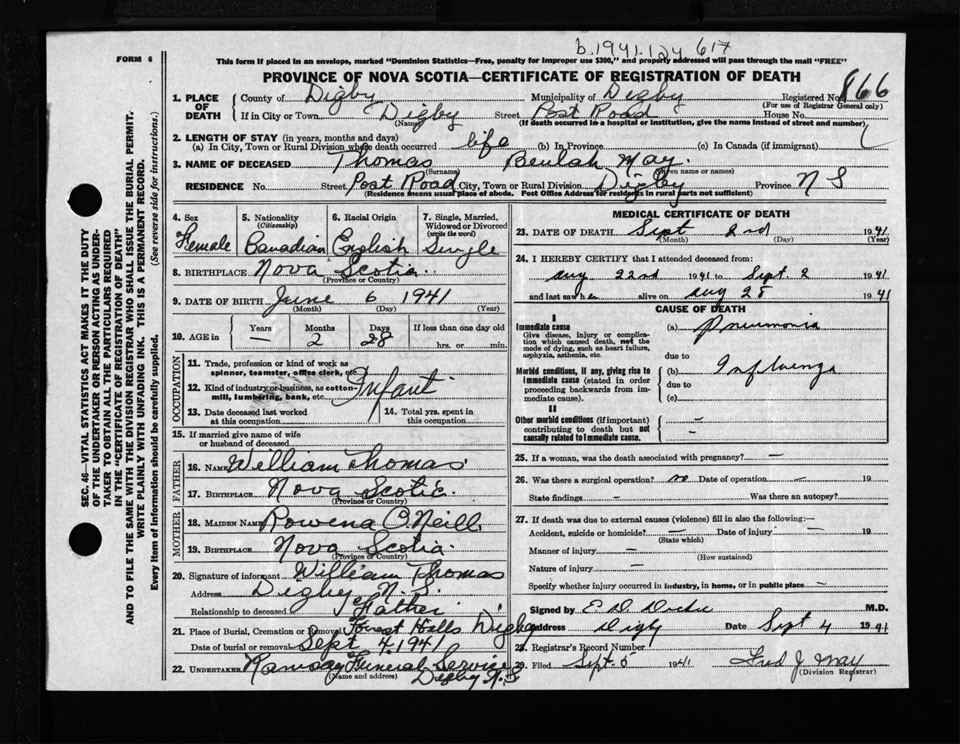 b.1941.124 617
FORM 6
This form if placed in an envelope, marked "Dominion Statistics—Free, penalty for improper use $300," and properly addressed will pass through the mail "FREE"
PROVINCE OF NOVA SCOTIA—CERTIFICATE OF REGISTRATION OF DEATH
1. PLACE OF DEATH County of Digby Municipality of Digby Registered No. 866
(For use of Registrar General only)
If in City or Town Digby Street Post Road House No.
(Name) (If death occurred in a hospital or institution, give the name instead of street and number)
2. LENGTH OF STAY (in years, months and days)
(a) In City, Town or Rural Division where death occurred life (b) In Province (c) In Canada (if immigrant)
3. NAME OF DECEASED Thomas Beulah May.
(Surname) (Given name or names)
RESIDENCE No. Street Post Road City, Town or Rural Division Digby Province N S
(Residence means usual place of abode. Post Office Address for residents in rural parts not sufficient)
4. Sex 5. Nationality (Citizenship) 6. Racial Origin 7. Single, Married, Widowed or Divorced (write the word)
Female Canadian English Single
8. BIRTHPLACE Nova Scotia
(Province or Country)
9. DATE OF BIRTH June 6 1941
(Month) (Day) (Year)
10. AGE in Years Months Days If less than one day old
— 2 28 hrs. or min.
OCCUPATION
11. Trade, profession or kind of work as spinner, teamster, office clerk, etc.
12. Kind of industry or business, as cotton-mill, lumbering, bank, etc. Infant
13. Date deceased last worked at this occupation 14. Total yrs. spent in this occupation
15. If married give name of wife or husband of deceased
FATHER
16. NAME William Thomas
17. BIRTHPLACE Nova Scotia
(Province or Country)
MOTHER
18. MAIDEN NAME Rowena O'Neill
19. BIRTHPLACE Nova Scotia
(Province or Country)
20. Signature of informant William Thomas
Address Digby N.S.
Relationship to deceased Father
21. Place of Burial, Cremation or Removal Forest Hills Digby
Date of burial or removal Sept. 4, 1941
22. UNDERTAKER Ramsay Funeral Service
(Name and address) Digby N.S
MEDICAL CERTIFICATE OF DEATH
23. DATE OF DEATH Sept 2nd 1941
(Month) (Day) (Year)
24. I HEREBY CERTIFY that I attended deceased from:
Aug 22nd 1941 to Sept 2 1941
and last saw h er alive on Aug 28 1941
CAUSE OF DEATH
I
Immediate cause (a) Pneumonia
Give disease, injury or complication which caused death, not the mode of dying, such as heart failure, asphyxia, asthenia, etc.
due to
Morbid conditions, if any, giving rise to immediate cause (stated in order proceeding backwards from immediate cause). (b) Influenza
due to
(c)
II
Other morbid conditions (if important) contributing to death but not causally related to immediate cause. –
–
25. If a woman, was the death associated with pregnancy? –
26. Was there a surgical operation? no Date of operation – 19
State findings – Was there an autopsy?
27. If death was due to external causes (violence) fill in also the following:—
Accident, suicide or homicide? — Date of injury – 19
(State which)
Manner of injury —
(How sustained)
Nature of injury —
Specify whether injury occurred in industry, in home, or in public place –
Signed by E D M.D.
Address Digby Date Sept 4 1941
28. Registrar's Record Number
29. Filed Sept. 5 1941 Fred J. May
(Division Registrar)
SEC. 46—VITAL STATISTICS ACT MAKES IT THE DUTY
OF THE UNDERTAKER OR PERSON ACTING AS UNDER-
TAKER TO OBTAIN ALL THE PARTICULARS REQUIRED
IN THE "CERTIFICATE OF REGISTRATION OF DEATH"
AND TO FILE THE SAME WITH THE DIVISION REGISTRAR WHO SHALL ISSUE THE BURIAL PERMIT.
WRITE PLAINLY WITH UNFADING INK. THIS IS A PERMANENT RECORD.
Every item of information should be carefully supplied. (See reverse side for instructions.)